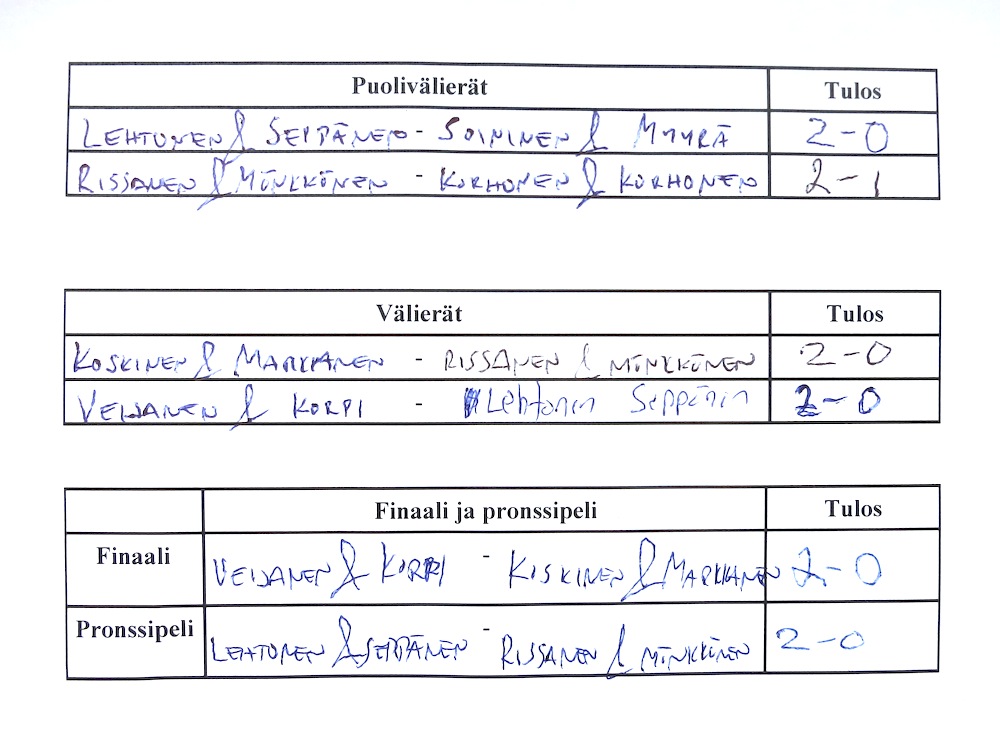 Puolivälierät Tulos
LEHTONEN & SEPPÄNEN - SOININEN & MYYRÄ 2-0
RISSANEN & MÖNKKÖNEN - KORHONEN & KORHONEN 2-1
Välierät Tulos
KOSKINEN & MARKKANEN - RISSANEN & MÖNKKÖNEN 2-0
VEIJANEN & KORPI - Lehtonen Seppänen 2-0
Finaali ja pronssipeli Tulos
Finaali VEIJANEN & KORPI - KOSKINEN & MARKKANEN 2-0
Pronssipeli LEHTONEN & SEPPÄNEN - RISSANEN & MÖNKKÖNEN 2-0